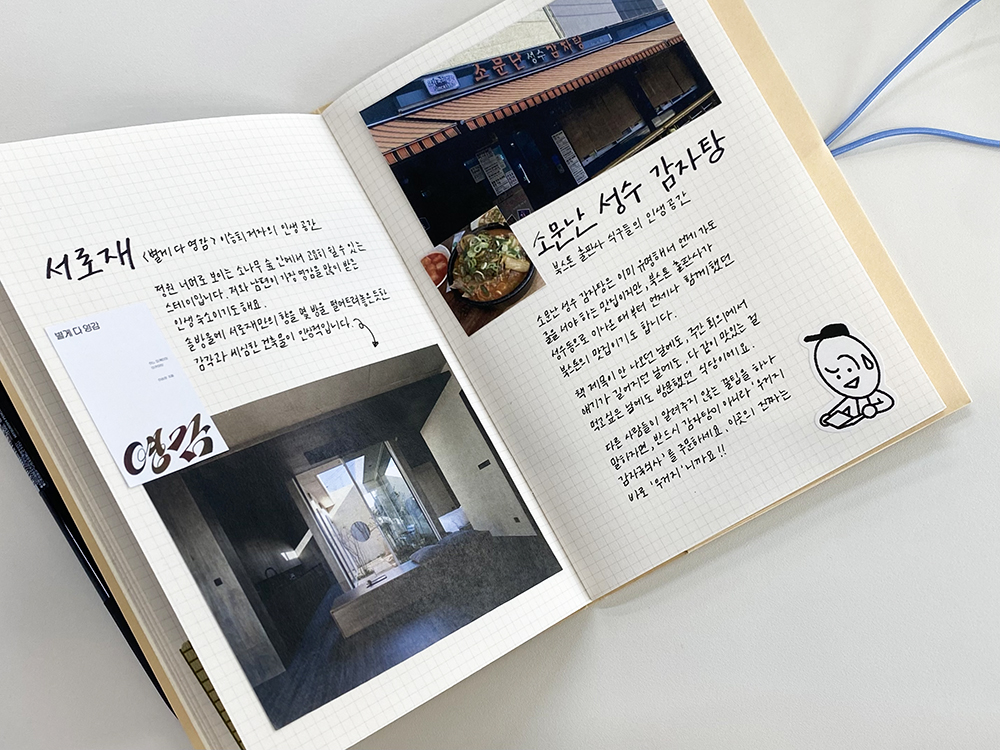 서로재 <별게 다 영감> 이승희 저자의 인생 공간
정원 너머로 보이는 소나무 숲 안에서 고요히 쉴 수 있는
스테이입니다. 저와 남편이 가장 영감을 많이 받은
인생 숙소이기도 해요.
솔방울에 서로재만의 향을 몇 방울 떨어트려놓은 듯한
감각과 세심한 건축물이 인상적입니다.
별게 다 영감
영감
소문난 성수 감자탕
소문난 성수 감자탕
북스톤 출판사 식구들의 인생 공간
소문난 성수 감자탕은 이미 유명해서 언제 가도
줄을 서야 하는 맛집이지만, 북스톤 출판사가
성수동으로 이사온 때부터 언제나 함께했던
북스톤의 맛집이기도 합니다.
책 제목이 안 나오던 날에도, 주간 회의에서
얘기가 길어지던 날에도, 다 같이 맛있는 걸
먹고싶은 날에도 방문했던 식당이에요.
다른 사람들이 알려주지 않는 꿀팁을 하나
말하자면, 반드시 감자탕이 아니라 '우거지
감자국백반'을 주문하세요. 이곳의 진짜는
바로 '우거지'니까요!!